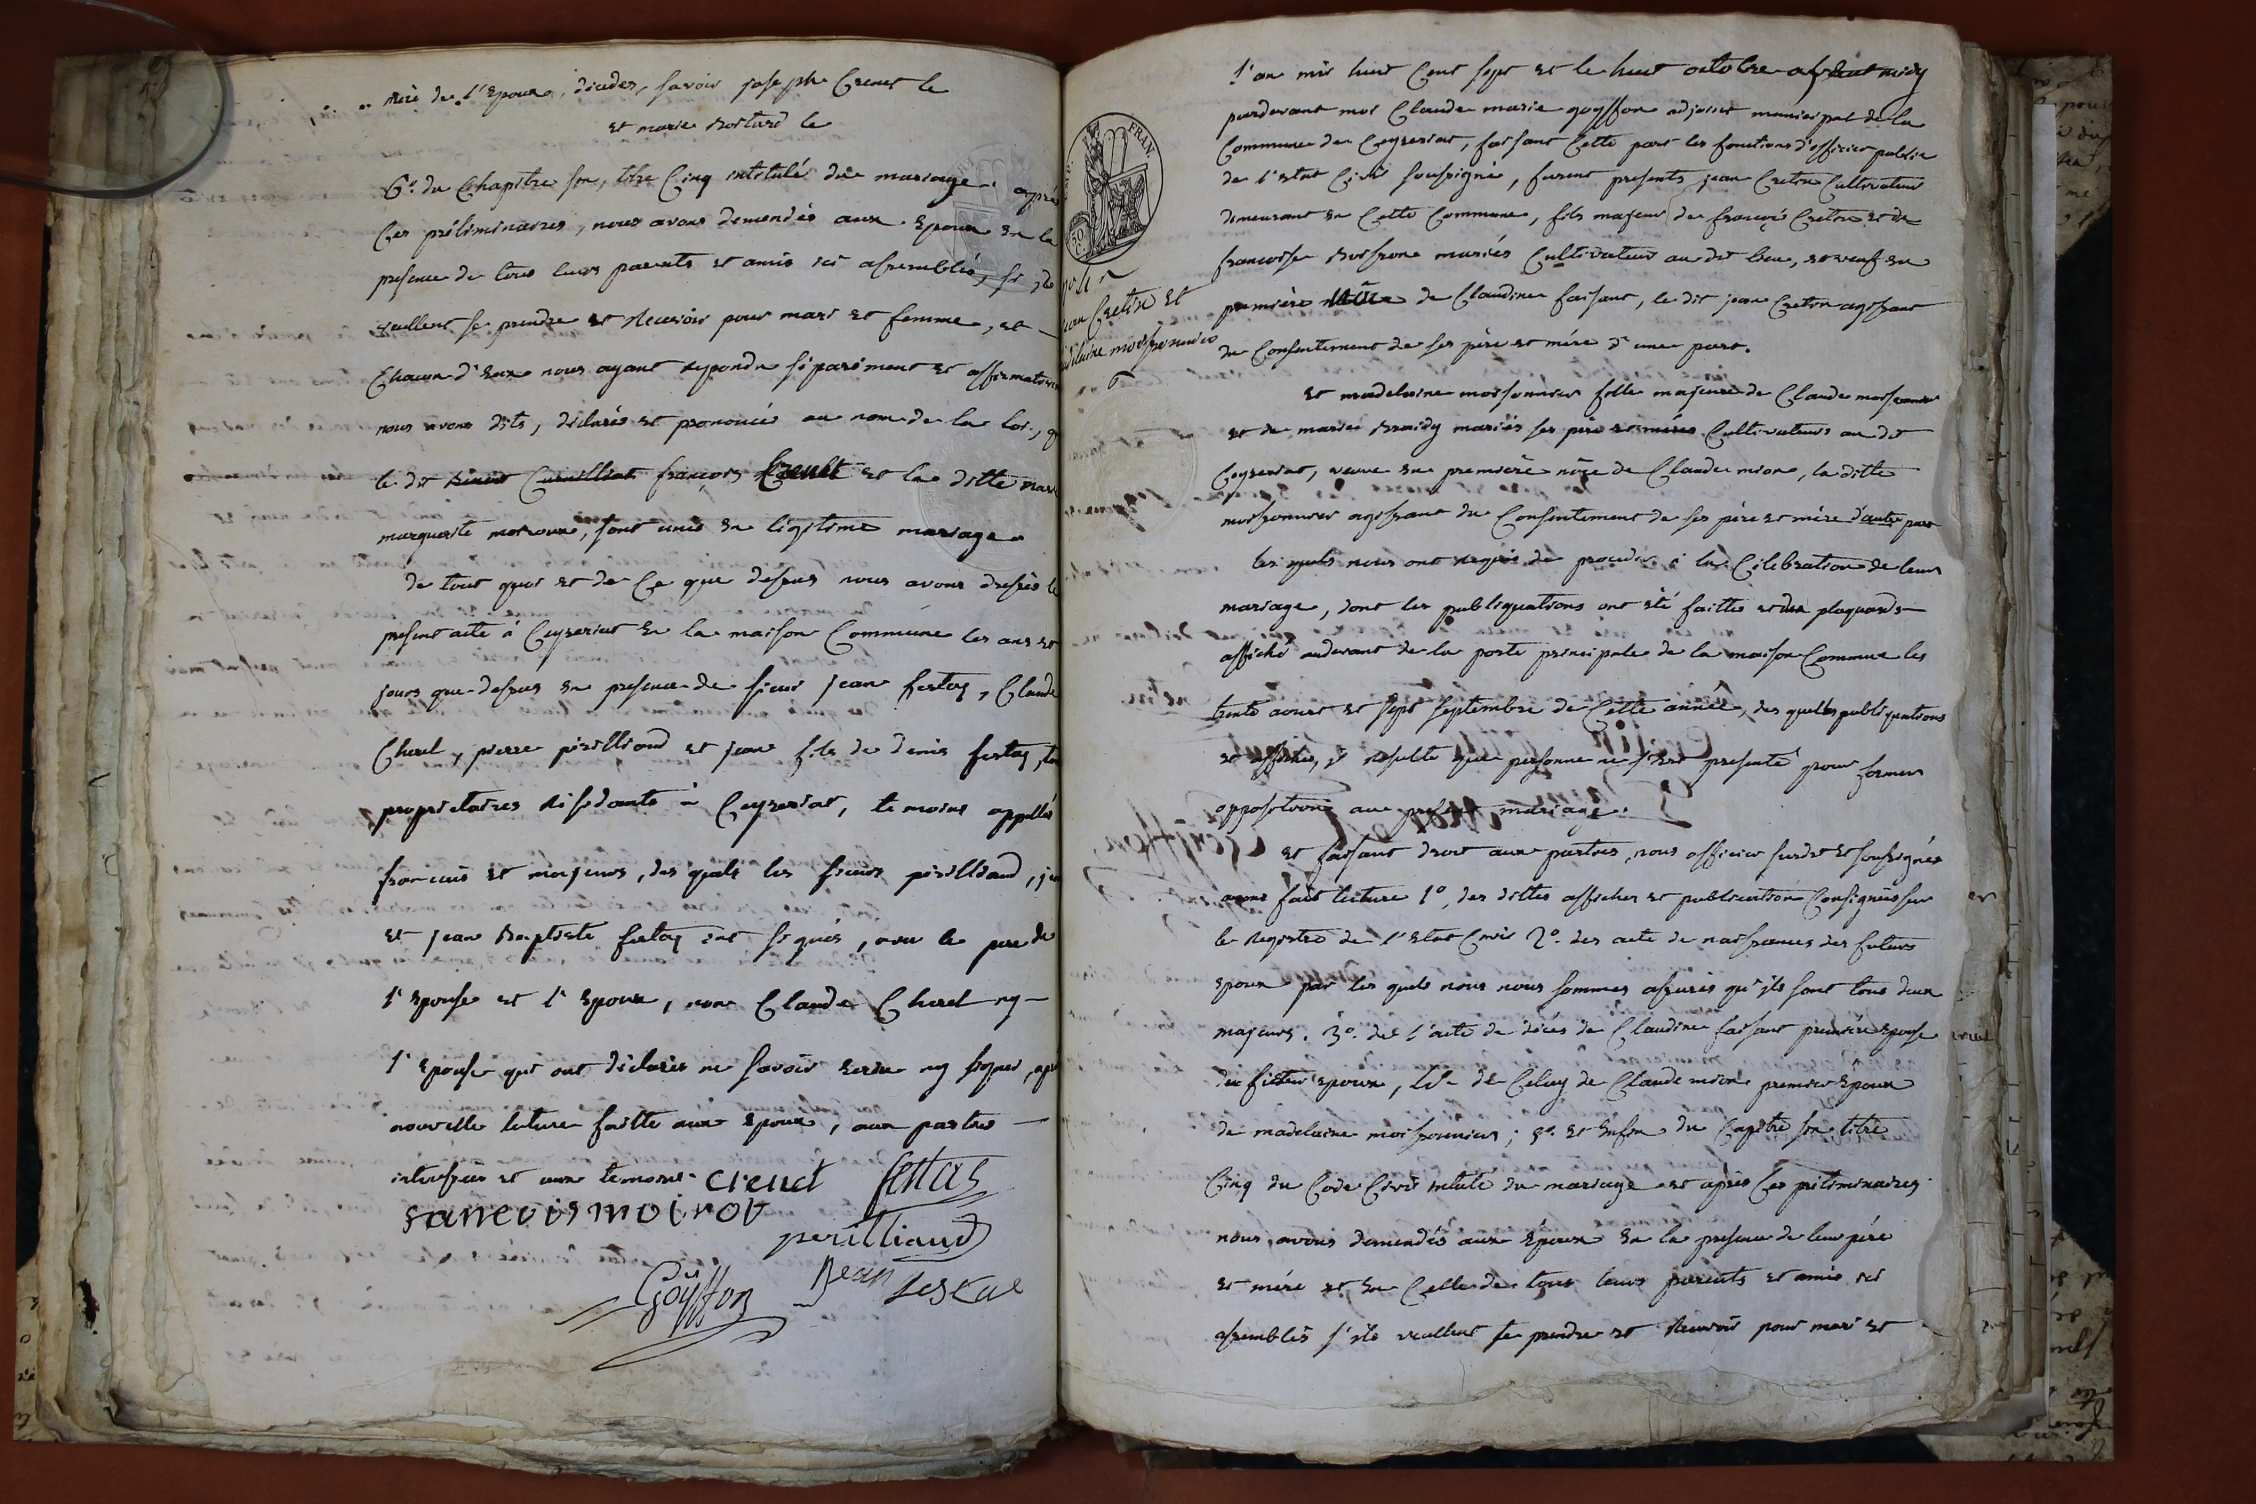 mère de l'Epoux, décédés, savoir joseph Creuet le
et marie Boitard le
6°. du Chapitre six, titre Cinq intitulé du mariage. après
Ces préliminaires, nous avons demendés aux Epoux En la
presence de tous leurs parents et amis ici assemblés, si ils
veullent se prendre et Recevoir pour mari et femme, et
Chacun d'Eux nous ayant repondu séparément et affirmativem
nous avons dits, déclarés et prononcé au nom de la loi, q
le dit françois Creuet et la ditte mar
marguerite moiroux, sont unis en légitime mariage
de tout quoi et de Ce que dessus nous avons dressés le
present acte à Ceyzeriat En la maison Commune les ans et
jours que dessus en presence de sieur jean festas, Claude
Chevel, pierre périlliand et jean fils de denis festas, to
proprietaires Résidants à Ceyzeriat, temoins appellés
francais et majeurs, des quels les sieurs périlliand, jean
et jean Baptiste festas ont signés, avec le pere de
l'Epouse et l'Epoux, non Claude Chevel ny
l'Epouse qui ont déclarés ne savoir Ecrire ny signer, apr
nouvelle lecture faitte aux Epoux, aux parties
interessées et aux temoins. creuet festas
moirou
perilliand
Goÿffon Jean festas
FRAN.
50 C.
jean Cretin et
madelaine moissonnier
6
l'an mil huit Cent sept et le huit octobre après midy
pardevant moi Claude marie goyffon adjoint municipal de la
Commune de Ceyzeriat, faisant Cette part les fonctions d'officier public
de l'Etat Civil soussigné, furent presents jean Cretin Cultivateur
demeurant En Cette Commune, fils majeur de françois Cretin et de
francoise Buisson mariés Cultivateur au dit lieu, et veuf En
première nôce de Claudine faisant, le dit jean Cretin agissant
du Consentement de ses père et mère d'une part.
et madelaine moissonnier fille majeure de Claude moissonnier
et de marie Braidy mariés ses père et mère Cultivateurs au dit
Ceyzeriat, veuve En première nôce de Claude mion, la ditte
moissonnier agissant du Consentement de ses père et mère d'autre part
les quels nous ont requis de proceder à la Célébration de leur
mariage, dont les publiquations ont été faittes et des plaquards
affiché audevant de la porte principale de la maison Commune les
trente aoust et sept septembre de Cette année, des quelles publiquations
et affiches, il resulte que personne ne s'est presenté pour former
opposition au present mariage.
et faisant droit aux parties, nous officier susdit et soussignés
avons fait lecture 1°. des dittes affiches et publication Consignées sur
le Registre de l'Etat Civil 2°. des acte de naissances des futurs
Epoux par les quels nous nous sommes assurés qu'ils sont tous deux
majeurs. 3°. de l'acte de décès de Claudine faisant première Epouse
du futur Epoux, 4°. de Celuy de Claude mion premier Epoux
de madelaine moissonnier; 5°. et Enfin du Chapitre six titre
Cinq du Code Civil intitulé du mariage et après Ces préliminaires
nous avons demendés aux Epoux En la presence de leur père
et mère et En Celle de tous leurs parents et amis ici
assemblés s'ils veullent se prendre et Recevoir pour mari et